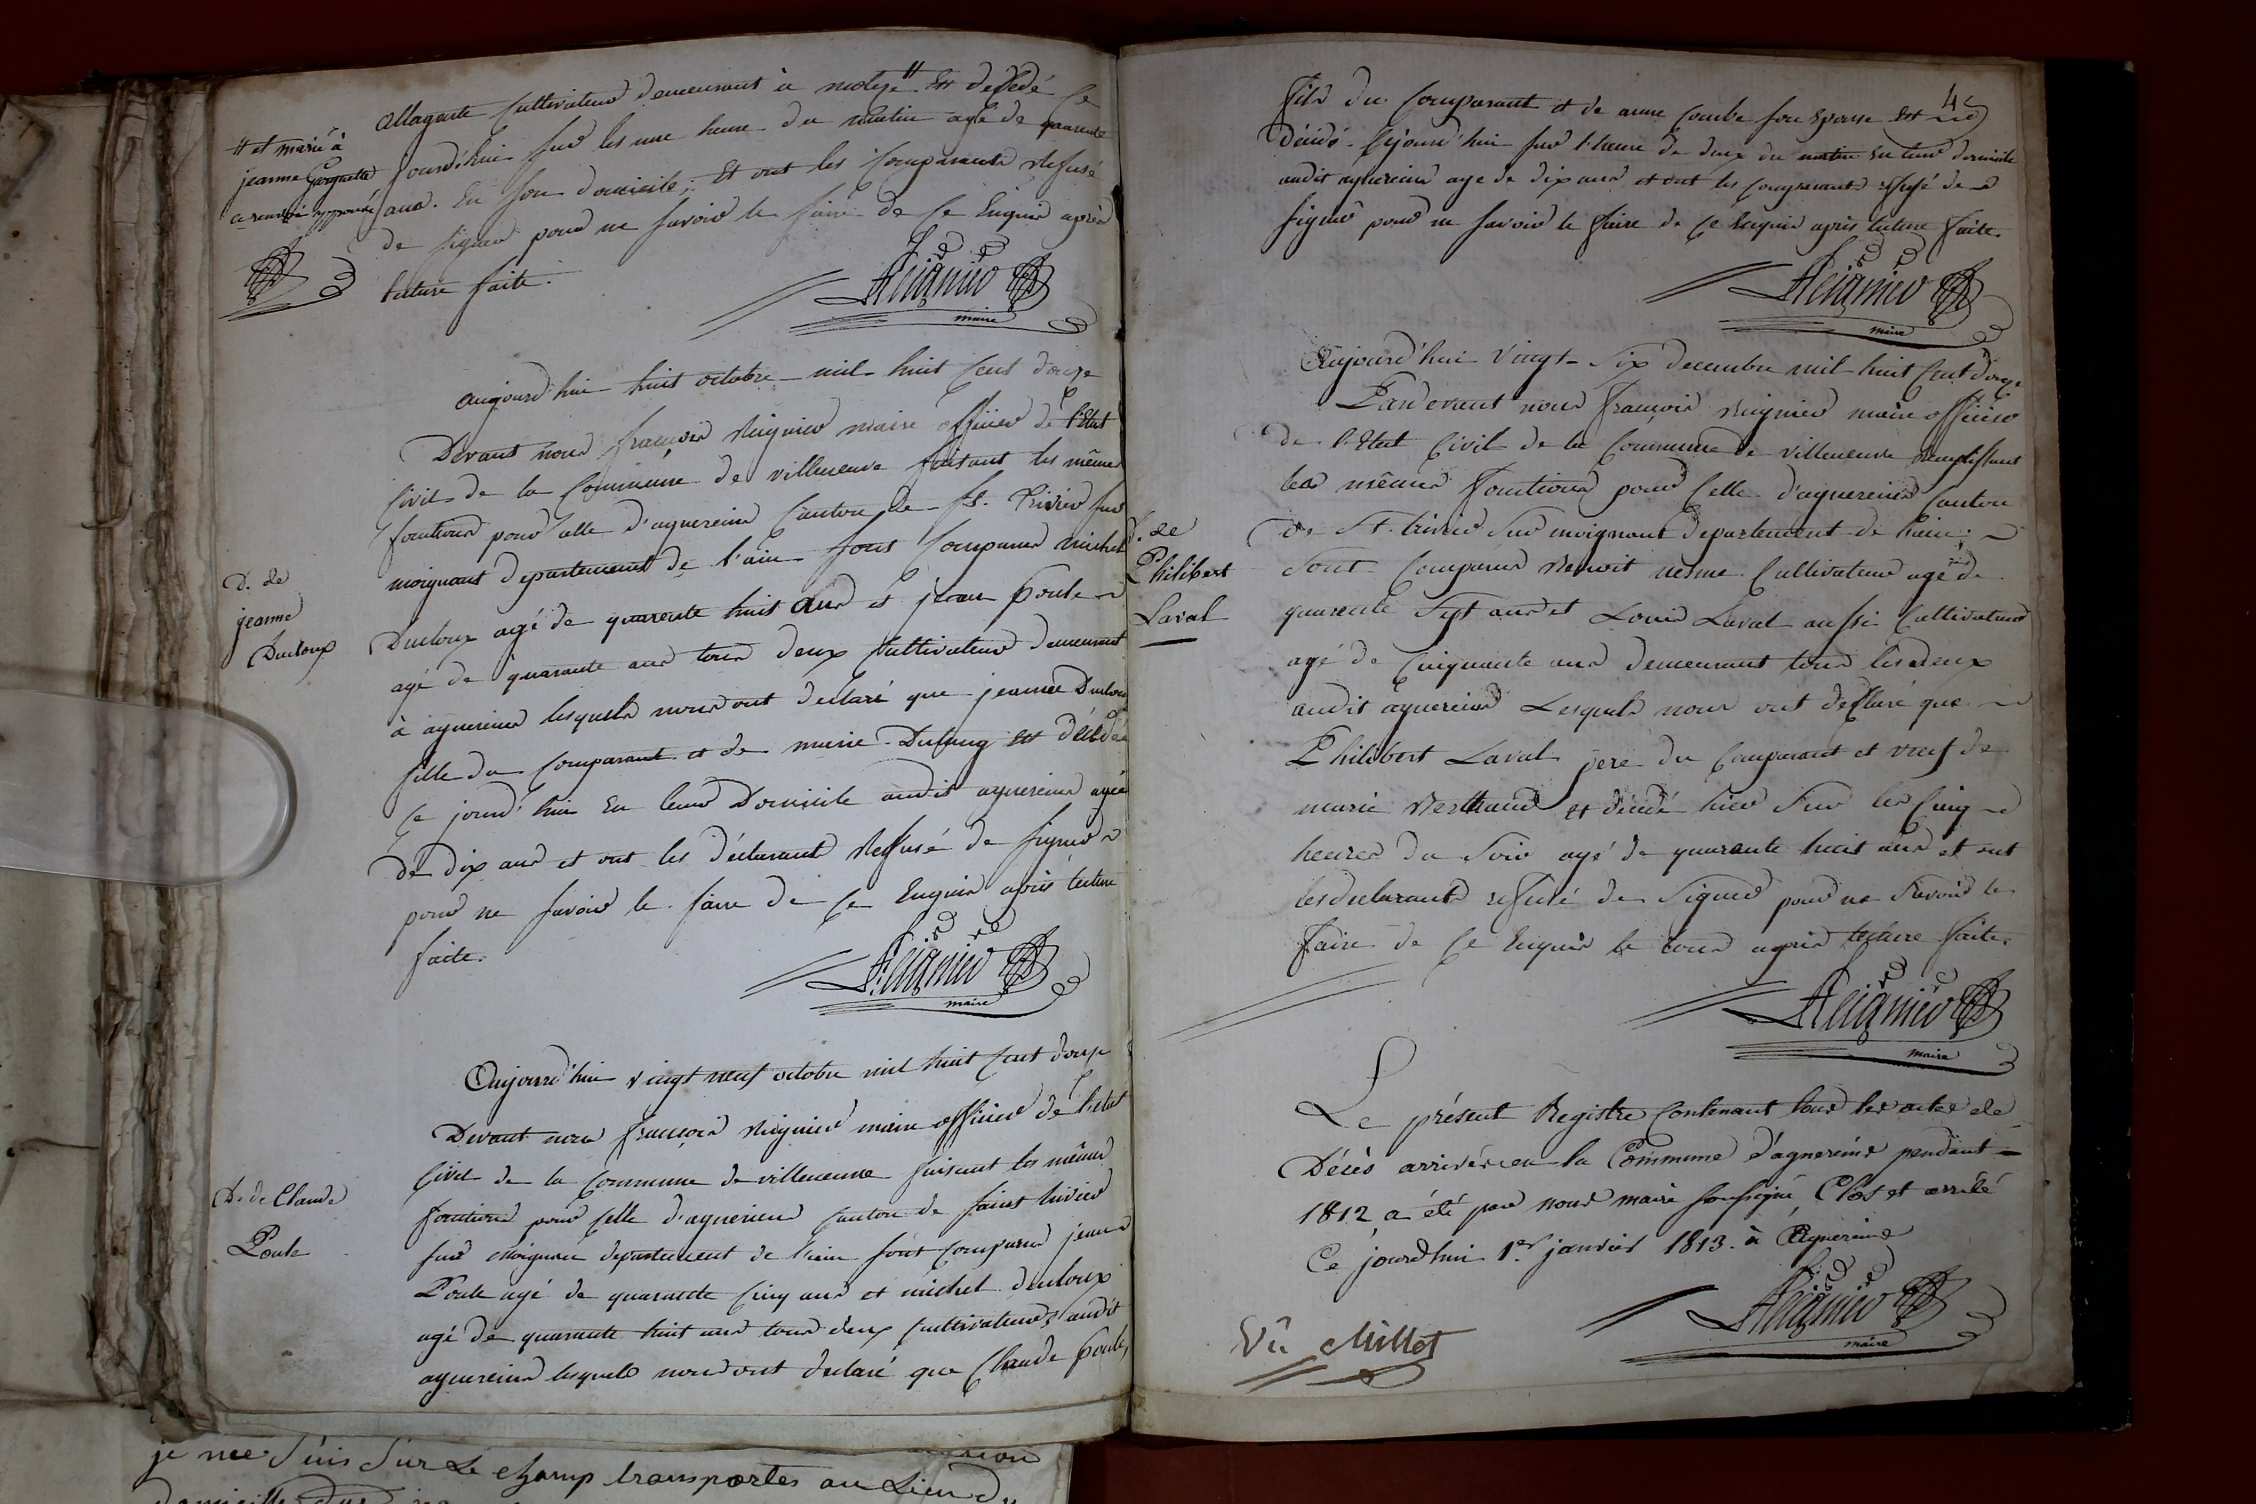 Allagarte Cultivateur demeurant à # Est décédé Ce
# et marié à
jeanne
ce renvoi approuvé
jourd'hui sur les une heure du matin agé de quarante
ans. En son domicile; Et ont les Comparants Refusé
de signer pour ne savoir le faire de Ce Enquis après
lecture faite.
Reignier
maire
aujourd'hui huit octobre mil huit Cent douze
Devant nous françois Reignier maire officier de l'Etat
Civil de la Commune de villeneuve faisant les mêmes
fonctions pour celle d'agnereins Canton de St. Trivier sur
moignant departement de l'ain sont Comparus michel
D. de
jeanne
Ducloux
Ducloux agé de quarente huit ans et jean poule
agé de quarante ans tous deux Cultivateurs demeurant
à agnereins lesquels nous ont declaré que jeanne Ducloux
fille du Comparant et de marie Est décédée
Ce jourd'hui En leur Domicile audit agnereins agée
de dix ans et ont les déclarants Refusé de signer
pour ne savoir le faire de Ce Enquis après lecture
faite.
Reignier
maire
Aujourd'hui vingt neuf octobre mil huit Cent douze
Devant nous françois Reignier maire officier de l'Etat
Civil de la Commune de villeneuve faisant les mêmes
D. de Claude
Poule
fonctions pour Celle d'agnereins Canton de saint trivier
sur moignans departement de l'ain sont Comparus jean
Poule agé de quarante Cinq ans et michel ducloux
agé de quarante huit ans tous deux Cultivateurs audit
agnereins lesquels nous ont declaré que Claude poule,
je me suis sur le champ transportés au Lieu du
4
fils du Comparant et de anne Combe son Epouse Est
décédé Cejourd'hui sur l'heure de deux du matin En leur domicile
audit agnereins age de dix ans et ont les Comparants refusé de
signer pour ne savoir le faire de Ce Enquis après lecture faite.
Reignier
maire
Aujourd'hui Vingt-Six decembre mil huit Cent douze
Pardevant nous françois Reignier maire officier
de l'Etat Civil de la Commune de villeneuve Remplissant
les mêmes fonctions pour Celle d'agnereins Canton
de St. trivier Sur moignant departement de l'ain
D. de
Philibert
Laval
Sont Comparus Benoit nesme Cultivateur agé de
quarente Sept ans et Louis Laval aussi Cultivateur
agé de Cinquante ans demeurant tous les deux
audit agnereins Lesquels nous ont déclaré que
Philibert Laval pere du Comparant et veuf de
marie est décédé hier Sur les Cinq
heures du Soir agé de quarante huit ans et ont
les declarants refusé de Signer pour ne Savoir le
faire de Ce Enquis le tous après lecture faite.
Reignier
maire
Le présent Registre Contenant tous les actes de
Décès arrivés en la Commune d'agnereins pendant
1812 a été par nous maire soussigné, Clos et arrêté
Ce jourd'hui 1.er janvier 1813. à Agnereins
Reignier
maire
Vu Millet